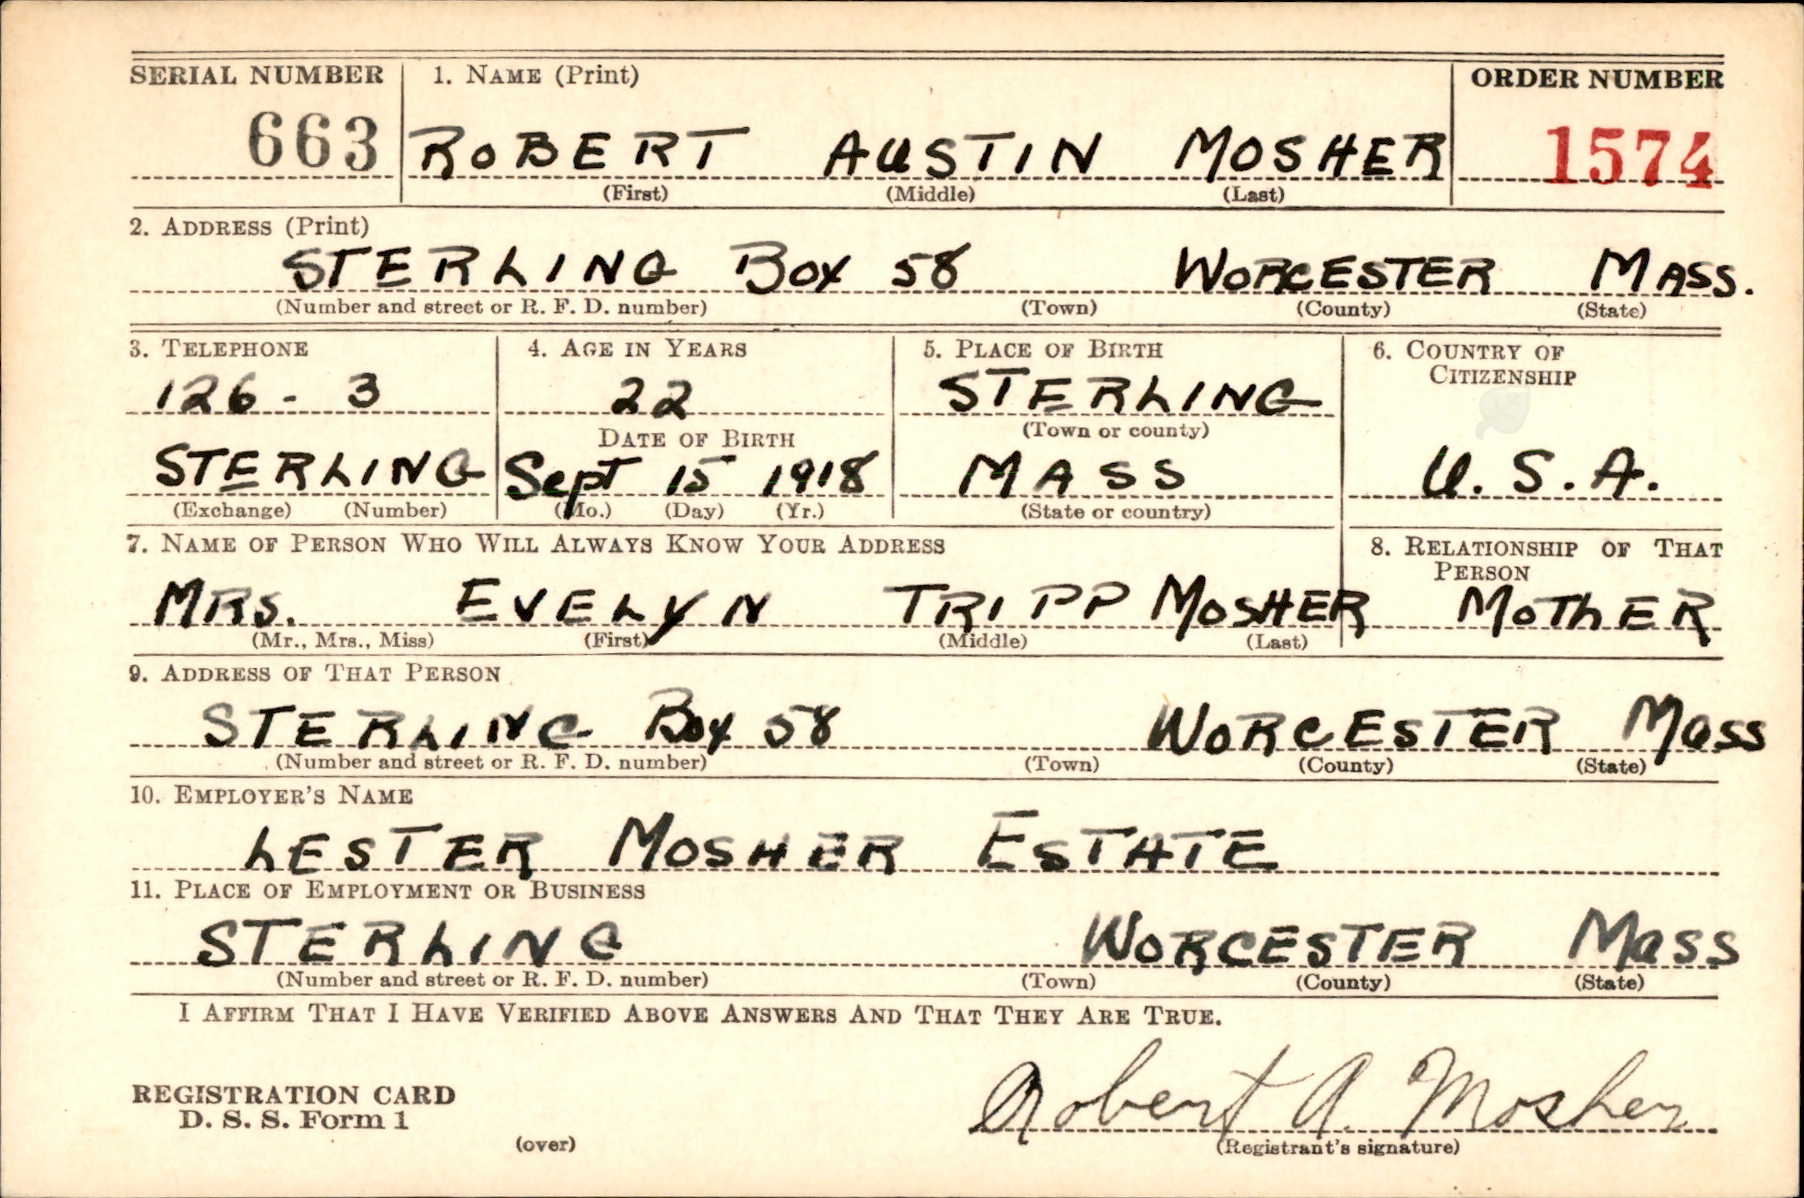 SERIAL NUMBER 1. NAME (Print) ORDER NUMBER
663 ROBERT AUSTIN MOSHER 1574
(First) (Middle) (Last)
2. ADDRESS (Print)
STERLING BOX 58 WORCESTER MASS.
(Number and street or R. F. D. number) (Town) (County) (State)
3. TELEPHONE 4. AGE IN YEARS 5. PLACE OF BIRTH 6. COUNTRY OF
CITIZENSHIP
126-3 22 STERLING
DATE OF BIRTH (Town or county)
STERLING Sept 15 1918 MASS U.S.A.
(Exchange) (Number) (Mo.) (Day) (Yr.) (State or country)
7. NAME OF PERSON WHO WILL ALWAYS KNOW YOUR ADDRESS 8. RELATIONSHIP OF THAT
PERSON
MRS. EVELYN TRIPP MOSHER MOTHER
(Mr., Mrs., Miss) (First) (Middle) (Last)
9. ADDRESS OF THAT PERSON
STERLING Box 58 WORCESTER Mass
(Number and street or R. F. D. number) (Town) (County) (State)
10. EMPLOYER'S NAME
LESTER MOSHER ESTATE
11. PLACE OF EMPLOYMENT OR BUSINESS
STERLING WORCESTER Mass
(Number and street or R. F. D. number) (Town) (County) (State)
I AFFIRM THAT I HAVE VERIFIED ABOVE ANSWERS AND THAT THEY ARE TRUE.
REGISTRATION CARD
D. S. S. Form 1 Robert A. Mosher
(over) (Registrant's signature)